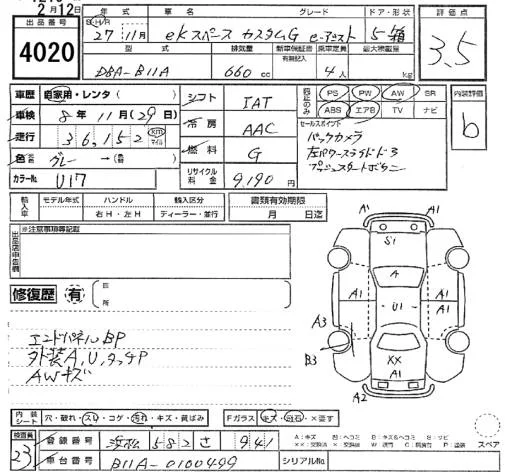 2月12日
出品番号
4020
年式 車名 グレード ドア・形状
S・H/R
27年 11月 eKスペース カスタムG e-アシスト 5-箱
型式 排気量 新車保証書 有無記入 乗車定員 最大積載量
DBA-B11A 660cc 4人 kg
評価点
3.5
車歴 自家用・レンタ( )
車検 8年 11月(29日)
走行 36,152 km マイル
色(元色) グレー →(色替)
カラーNo. U17
シフト IAT
冷房 AAC
燃料 G
リサイクル料金 9,190円
正規のみ
PS PW AW SR
ABS エアB TV ナビ
内装評価
b
セールスポイント
バックカメラ
左パワースライドドア
プッシュスタートボタン
輸入車 モデル年式 ハンドル 輸入区分
右H・左H ディーラー・並行
書類有効期限
月 日迄
出品店申告欄
※注意事項等記載
修復歴 有 箇所
エンドパネルBP
外装A,U,タッチP
AWキズ
A1 A1
S1
A
A1 U1 A1
A3
B3
XX
A1
A2
内装シート 穴・破れ・スレ・コゲ・汚れ・キズ・黄ばみ
Fガラス キズ・飛石・×要す
検査員
23
登録番号 浜松 582 さ 941
車台番号 B11A-0100499
シリアルNo.
A:キズ U:ヘコミ B:キズ&ヘコミ S:サビ
スペア